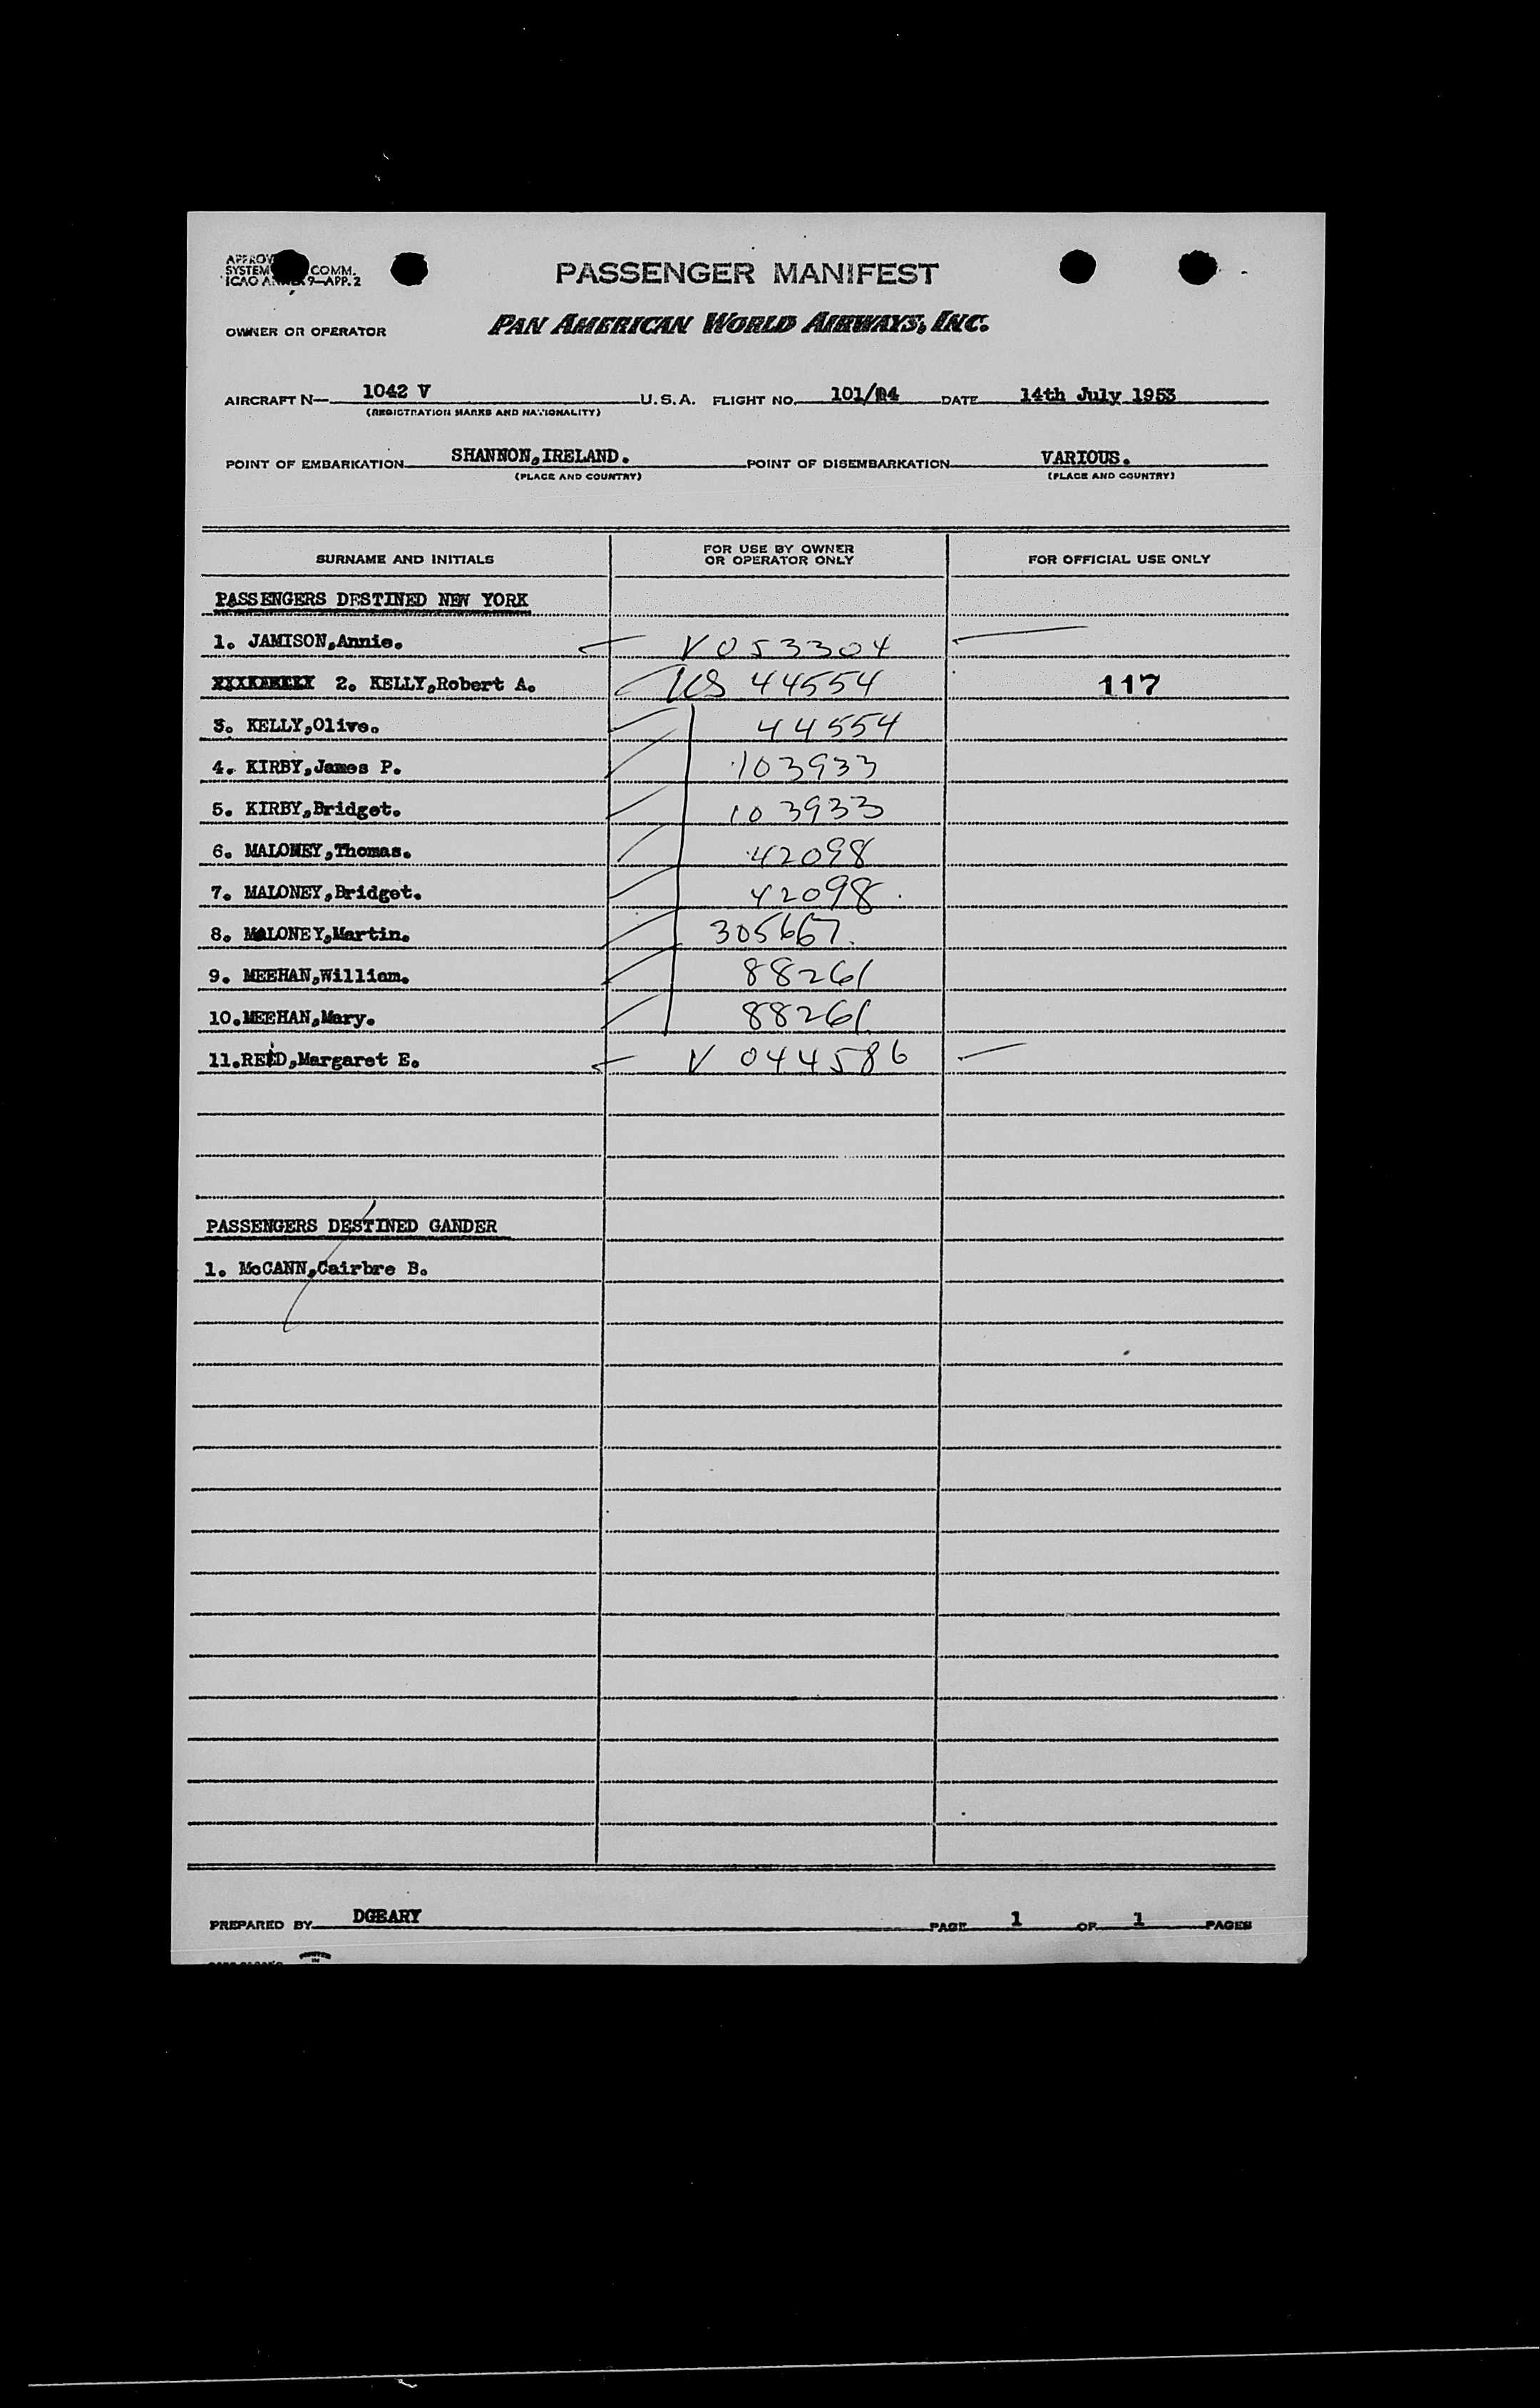 PASSENGER MANIFEST
COMM.
SYSTEM
9—APP. 2
OWNER OR OPERATOR PAN AMERICAN WORLD AIRWAYS, INC.
AIRCRAFT N— 1042 V U.S.A. FLIGHT NO. 101/ DATE 14th July 1953
(REGISTRATION MARKS AND NATIONALITY)
POINT OF EMBARKATION SHANNON,IRELAND. POINT OF DISEMBARKATION VARIOUS.
(PLACE AND COUNTRY) (PLACE AND COUNTRY)
SURNAME AND INITIALS FOR USE BY OWNER OR OPERATOR ONLY FOR OFFICIAL USE ONLY
PASSENGERS DESTINED NEW YORK
1. JAMISON,Annie. V 053304
2. KELLY,Robert A. US 44554 117
3. KELLY,Olive. 44554
4. KIRBY,James P. 103933
5. KIRBY,Bridget. 103933
6. MALONEY,Thomas. 42098
7. MALONEY,Bridget. 42098
8. MALONEY,Martin. 305667
9. MEEHAN,William. 88261
10.MEEHAN,Mary. 88261
11.REID,Margaret E. V 044586
PASSENGERS DESTINED GANDER
1. McCANN,Cairbre B.
PREPARED BY DGEARY PAGE 1 OF 1 PAGES